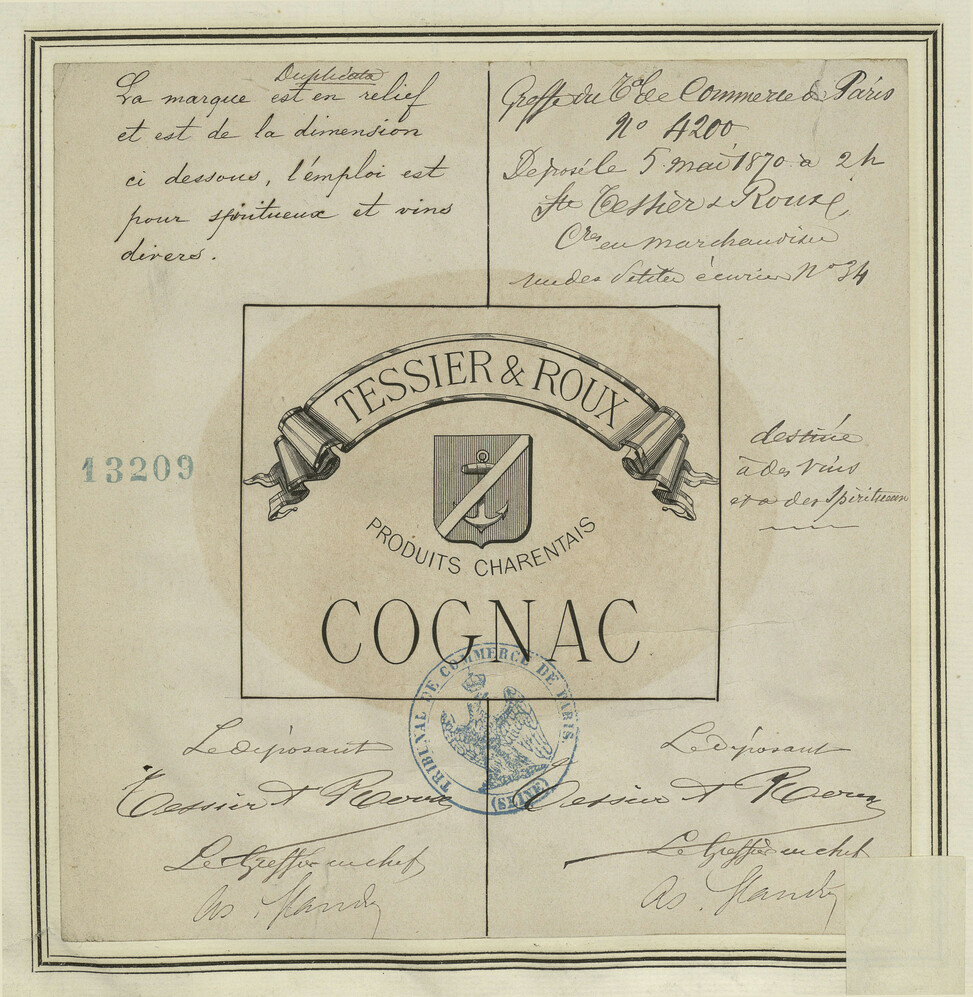 Duplicata
La marque est en relief
et est de la dimension
ci dessous, l'emploi est
pour spiritueux et vins
divers.
Greffe du Tal de Commerce de Paris
No 4200
Déposé le 5 mai 1870 à 2 h
Tessier & Roux
en marchandises
rue des Petites écuries No 34
TESSIER & ROUX
PRODUITS CHARENTAIS
COGNAC
13209
destinée
à des vins
et à des spiritueux
TRIBUNAL DE COMMERCE DE PARIS.
(SEINE)
Le déposant
Tessier & Roux
Le Greffier en chef
Le déposant
Tessier & Roux
Le Greffier en chef